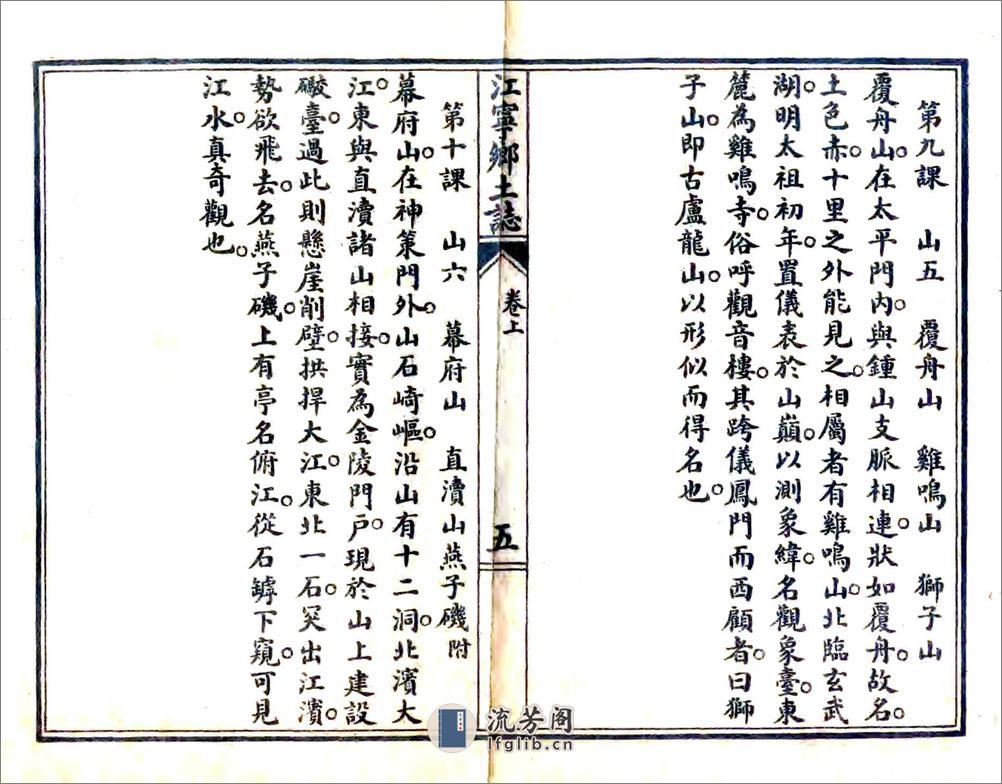 第九課　山五　覆舟山　雞鳴山　獅子山
覆舟山。在太平門內。與鍾山支脈相連。狀如覆舟。故名。
土色赤。十里之外能見之。相屬者有雞鳴山。北臨玄武
湖。明太祖初年。置儀表於山巔。以測象緯。名觀象臺。東
麓為雞鳴寺。俗呼觀音樓。其跨儀鳳門而西顧者。曰獅
子山。即古盧龍山。以形似而得名也。
江寧鄉土誌
卷上
五
第十課　山六　幕府山　直瀆山燕子磯附
幕府山。在神策門外。山石崎嶇。沿山有十二洞。北濱大
江。東與直瀆諸山相接。實為金陵門戶。現於山上建設
礮臺。過此則懸崖削壁。拱捍大江。東北一石。突出江濱。
勢欲飛去。名燕子磯。上有亭名俯江。從石罅下窺。可見
江水。真奇觀也。
流芳阁
lfglib.cn